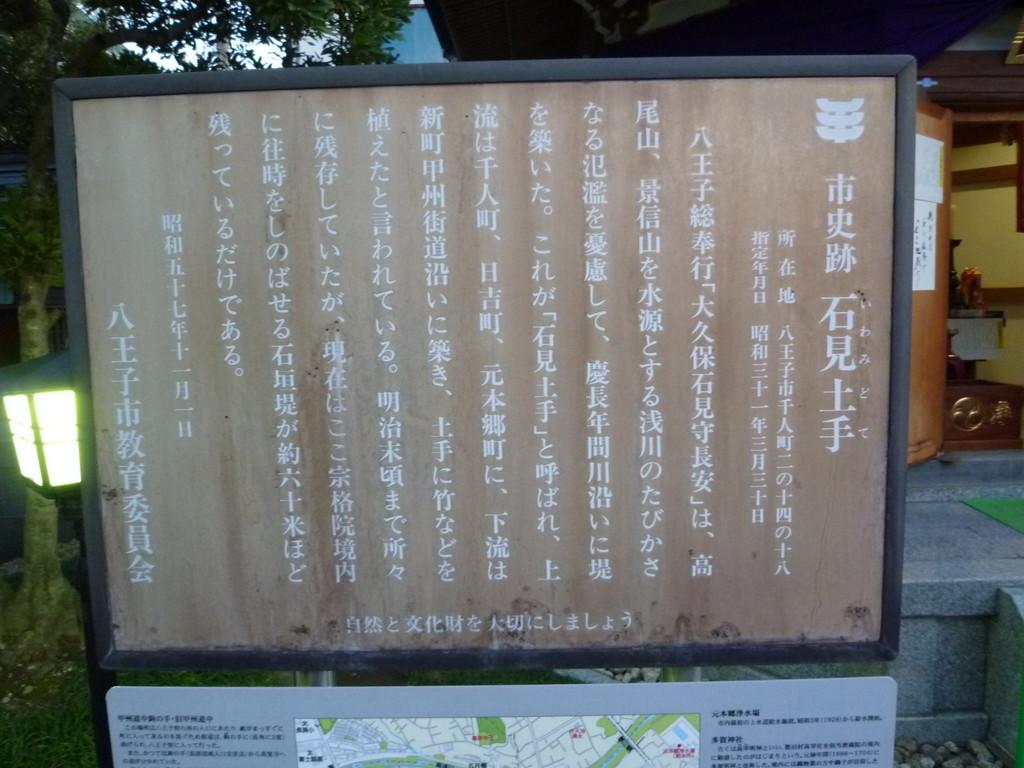 市史跡 石見土手
いわみどて
所在地 八王子市千人町二の十四の十八
指定年月日 昭和三十一年三月三十日
八王子総奉行「大久保石見守長安」は、高
尾山、景信山を水源とする浅川のたびかさ
なる氾濫を憂慮して、慶長年間川沿いに堤
を築いた。これが「石見土手」と呼ばれ、上
流は千人町、日吉町、元本郷町に、下流は
新町甲州街道沿いに築き、土手に竹などを
植えたと言われている。明治末頃まで所々
に残存していたが、現在はここ宗格院境内
に往時をしのばせる石垣堤が約六十米ほど
残っているだけである。
昭和五十七年十一月一日
八王子市教育委員会
自然と文化財を大切にしましょう
甲州道中鉤の手・旧甲州道中
元本郷浄水場
多賀神社